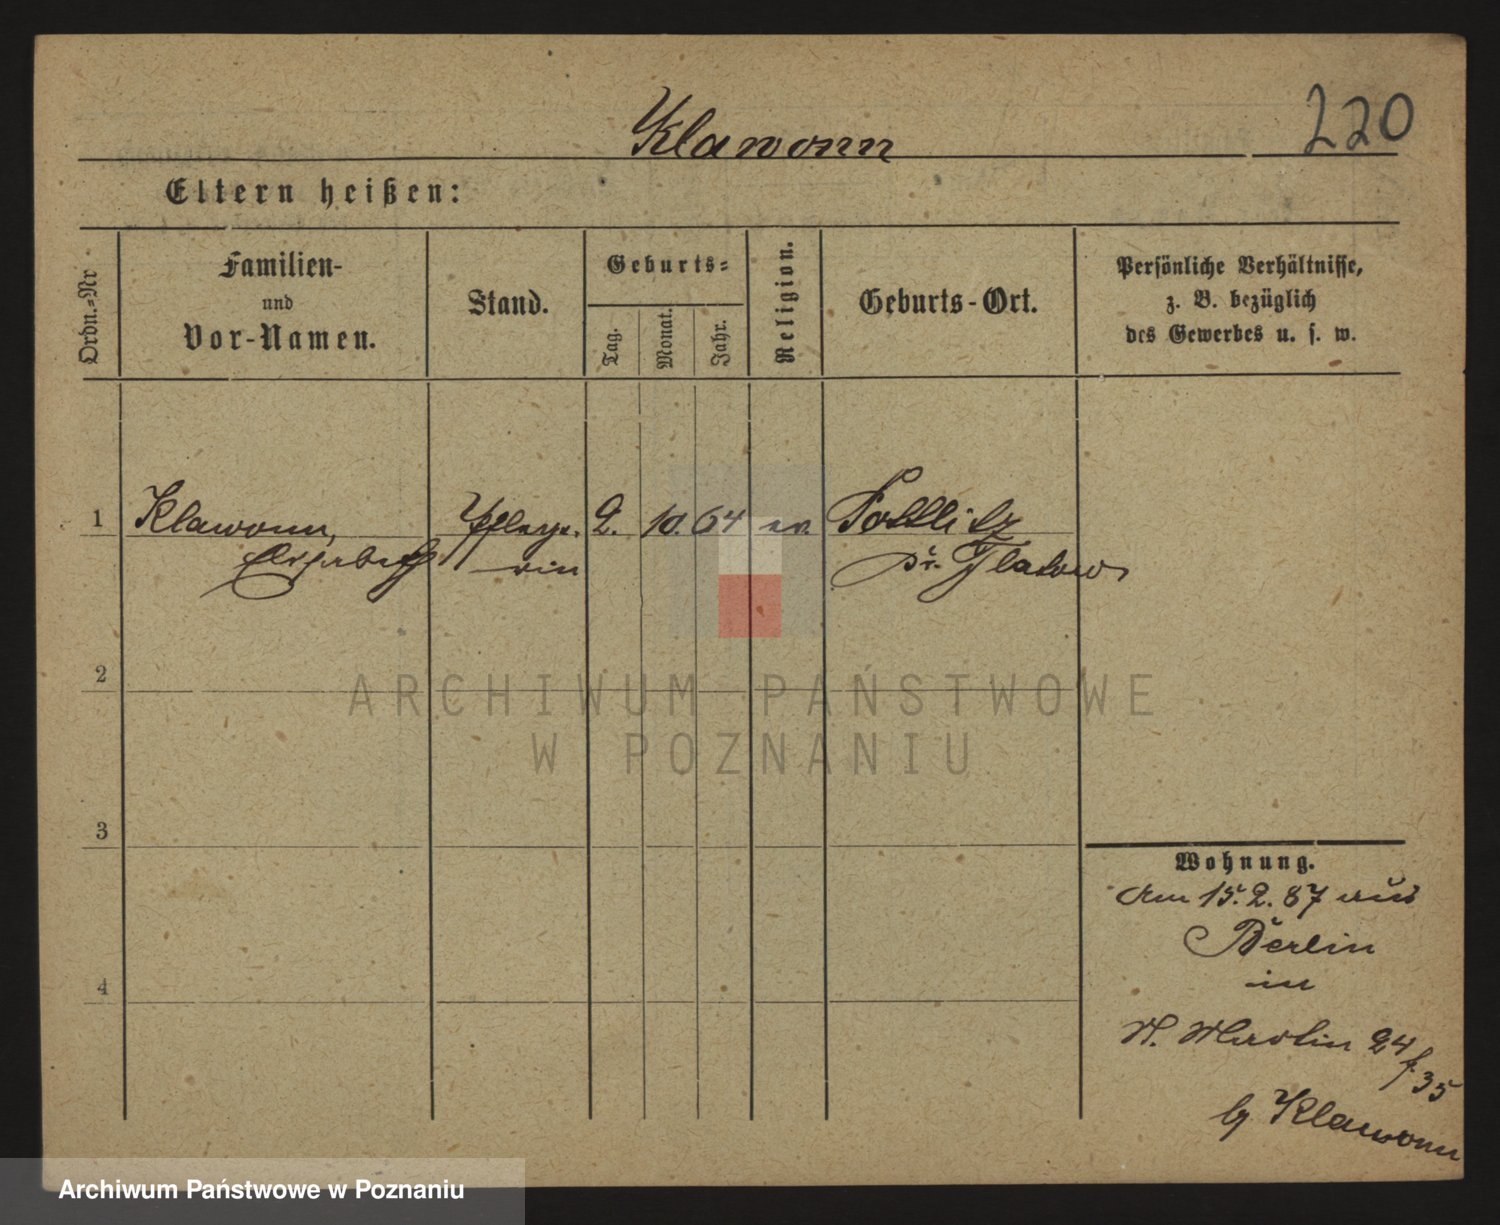 Klawonn
220
Eltern heißen:
Ordn.-Nr
Familien-
und
Vor-Namen.
Stand.
Geburts-
Tag.
Monat.
Jahr.
Religion.
Geburts-Ort.
Persönliche Verhältnisse,
z. B. bezüglich
des Gewerbes u. s. w.
1
Klawonn,
Elisabeth
Pflege-
rin
2.
10.
64
ev.
Pottlitz
Kr. Flatow
2
3
4
Wohnung.
Am 15.2.87 aus
Berlin
in
St. Martin 24/
35
by Klawonn
ARCHIWUM PAŃSTWOWE
W POZNANIU
Archiwum Państwowe w Poznaniu